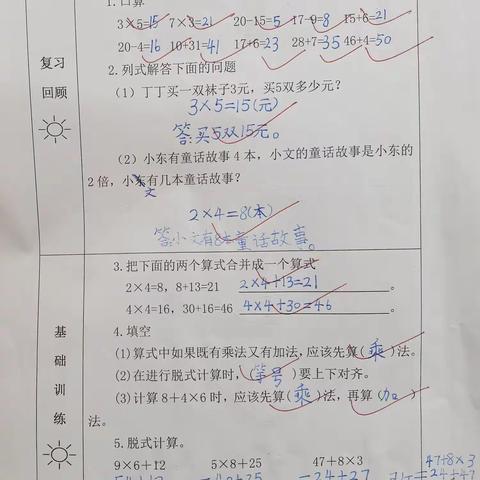 1.口算
3×5=15 7×3=21 20-15=5 17-9=8 15+6=21
20-4=16 10+31=41 17+6=23 28+7=35 46+4=50
复习
回顾
2.列式解答下面的问题
(1)丁丁买一双袜子3元,买5双多少元?
3×5=15(元)
答:买5双15元。
(2)小东有童话故事4本,小文的童话故事是小东的
2倍,小东有几本童话故事?
文
2×4=8(本)
答:小文有8本童话故事。
3.把下面的两个算式合并成一个算式
2×4=8, 8+13=21 2×4+13=21。
4×4=16, 30+16=46 4×4+30=46。
基
础
训
练
4.填空
(1)算式中如果既有乘法又有加法,应该先算(乘)法。
(2)在进行脱式计算时,(等号)要上下对齐。
(3)计算8+4×6时,应该先算(乘)法,再算(加)
法。
5.脱式计算。
9×6+12 5×8+25 47+8×3 47+8×3
=40+25